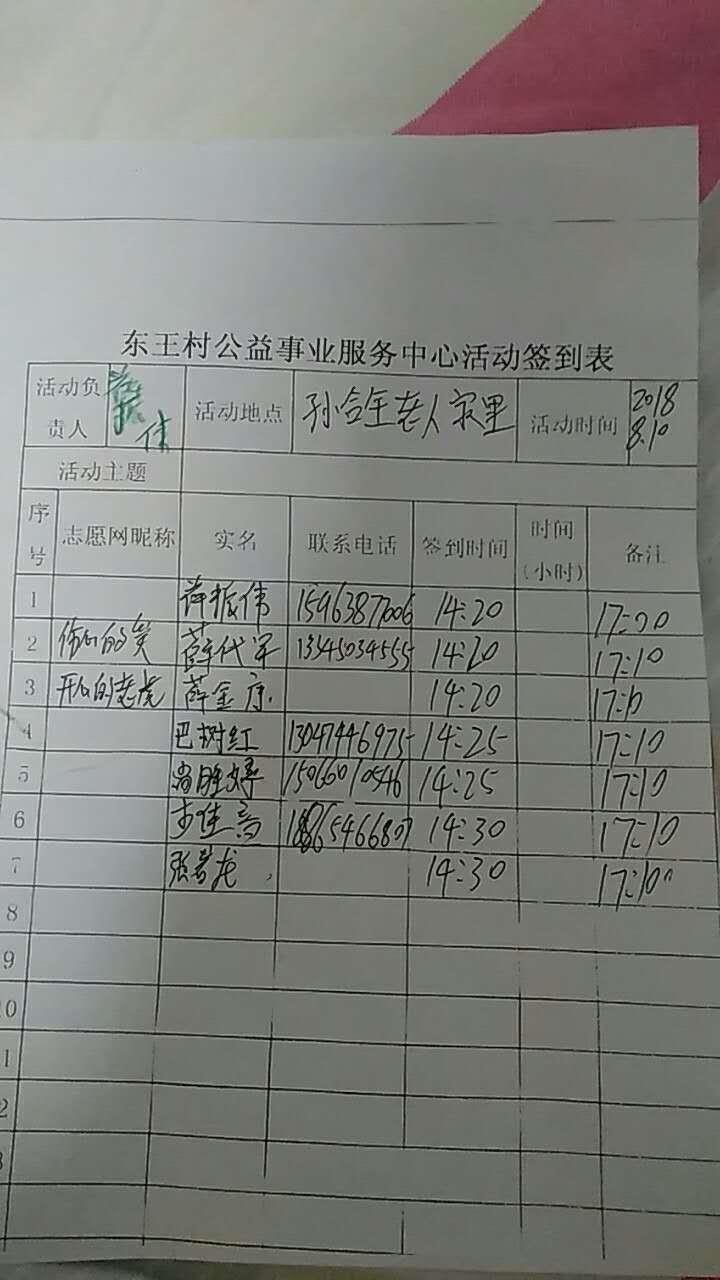 东王村公益事业服务中心活动签到表
活动负责人 伟 活动地点 孙合全老人家里 活动时间 2018 8.10
活动主题
序号 志愿网昵称 实名 联系电话 签到时间 时间(小时) 备注
1 薛振伟 14:20 17:00
2 薛代军 13345034555 14:20 17:10
3 开心的老虎 薛金 14:20
4 巴树红 13047446975 14:25 17:10
5 15066010546 14:25 17:10
6 14:30 17:10
7 张若龙 14:30 17:10
8
9
10
1
2
3